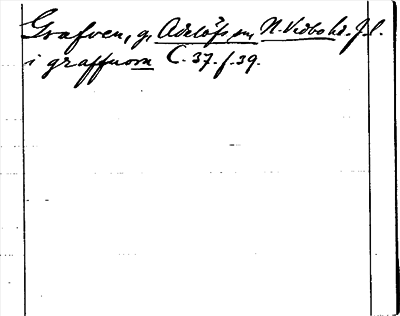 Grafven, g. Adelöfs sn, N. Vedbo hd. J.l.
i graffuom C. 37. f. 39.